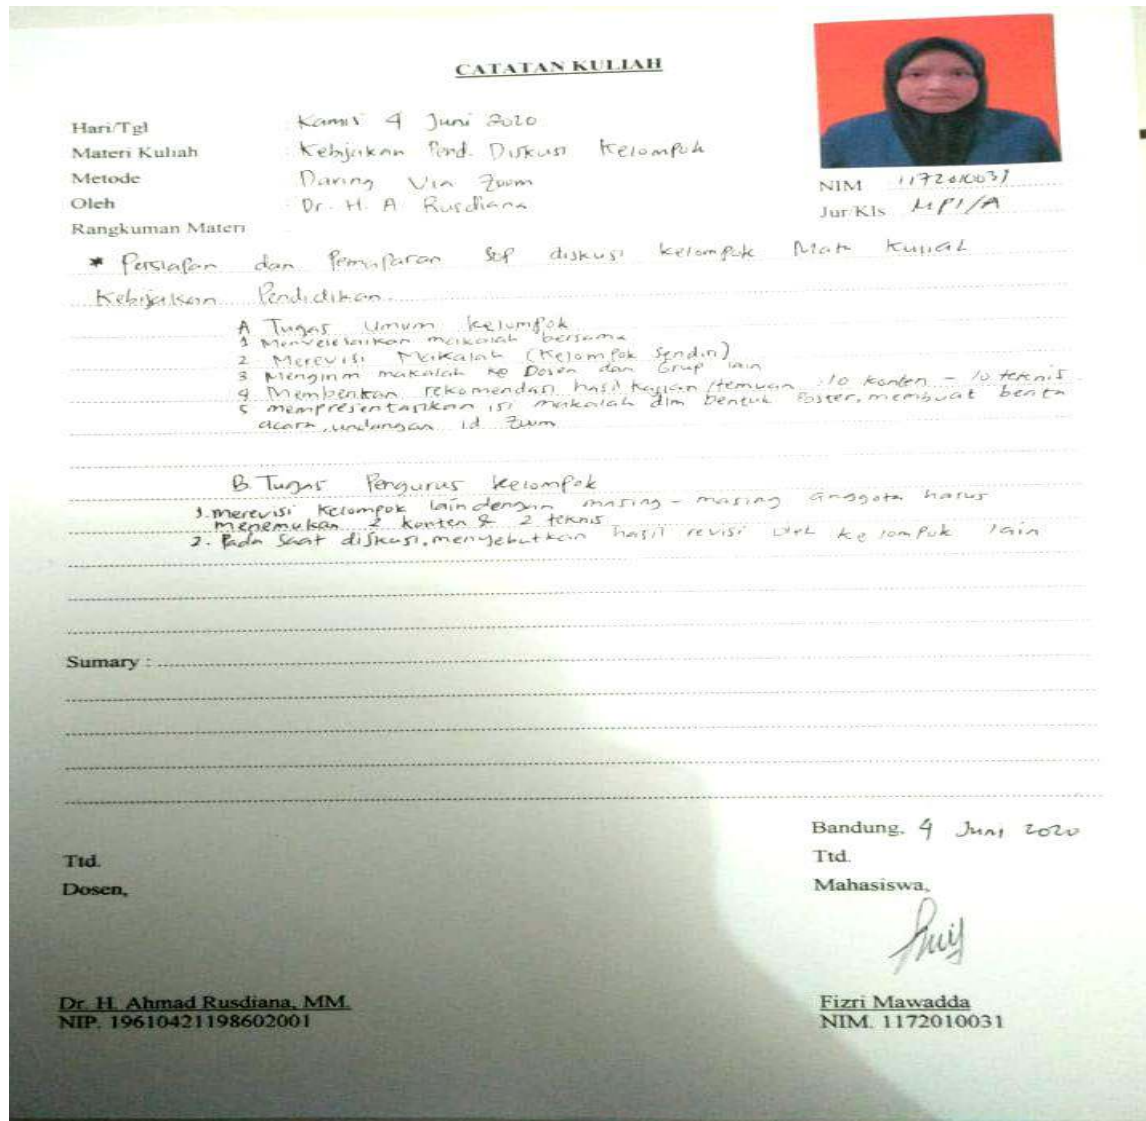 CATATAN KULIAH
Hari/Tgl Kamis 4 Juni 2020
Materi Kuliah : Kebijakan Pend. Diskusi Kelompok
Metode Daring Via Zoom
Oleh : Dr. H. A. Rusdiana
Rangkuman Materi
NIM 1172010031
Jur/Kls MPI/A
* Persiapan dan Pemaparan SOP diskusi kelompok Mata Kuliah
Kebijakan Pendidikan.
A Tugas Umum kelompok
1 Menyelesaikan makalah bersama
2 Merevisi Makalah (Kelompok Sendiri)
3 Mengirim makalah ke Dosen dan Grup lain
4 Memberikan rekomendasi hasil kajian/temuan 10 konten - 10 teknis
5 mempresentasikan isi makalah dlm bentuk Poster, membuat berita
acara, undangan id Zoom
B. Tugas Pengurus kelompok
1. merevisi kelompok lain dengan masing - masing anggota harus
menemukan 2 konten & 2 teknis
2. Pada saat diskusi, menyebutkan hasil revisi utk kelompok lain
Sumary :
Bandung, 4 Juni 2020
Ttd.
Dosen,
Ttd.
Mahasiswa,
Dr. H. Ahmad Rusdiana, MM.
NIP. 19610421198602001
Fizri Mawadda
NIM. 1172010031